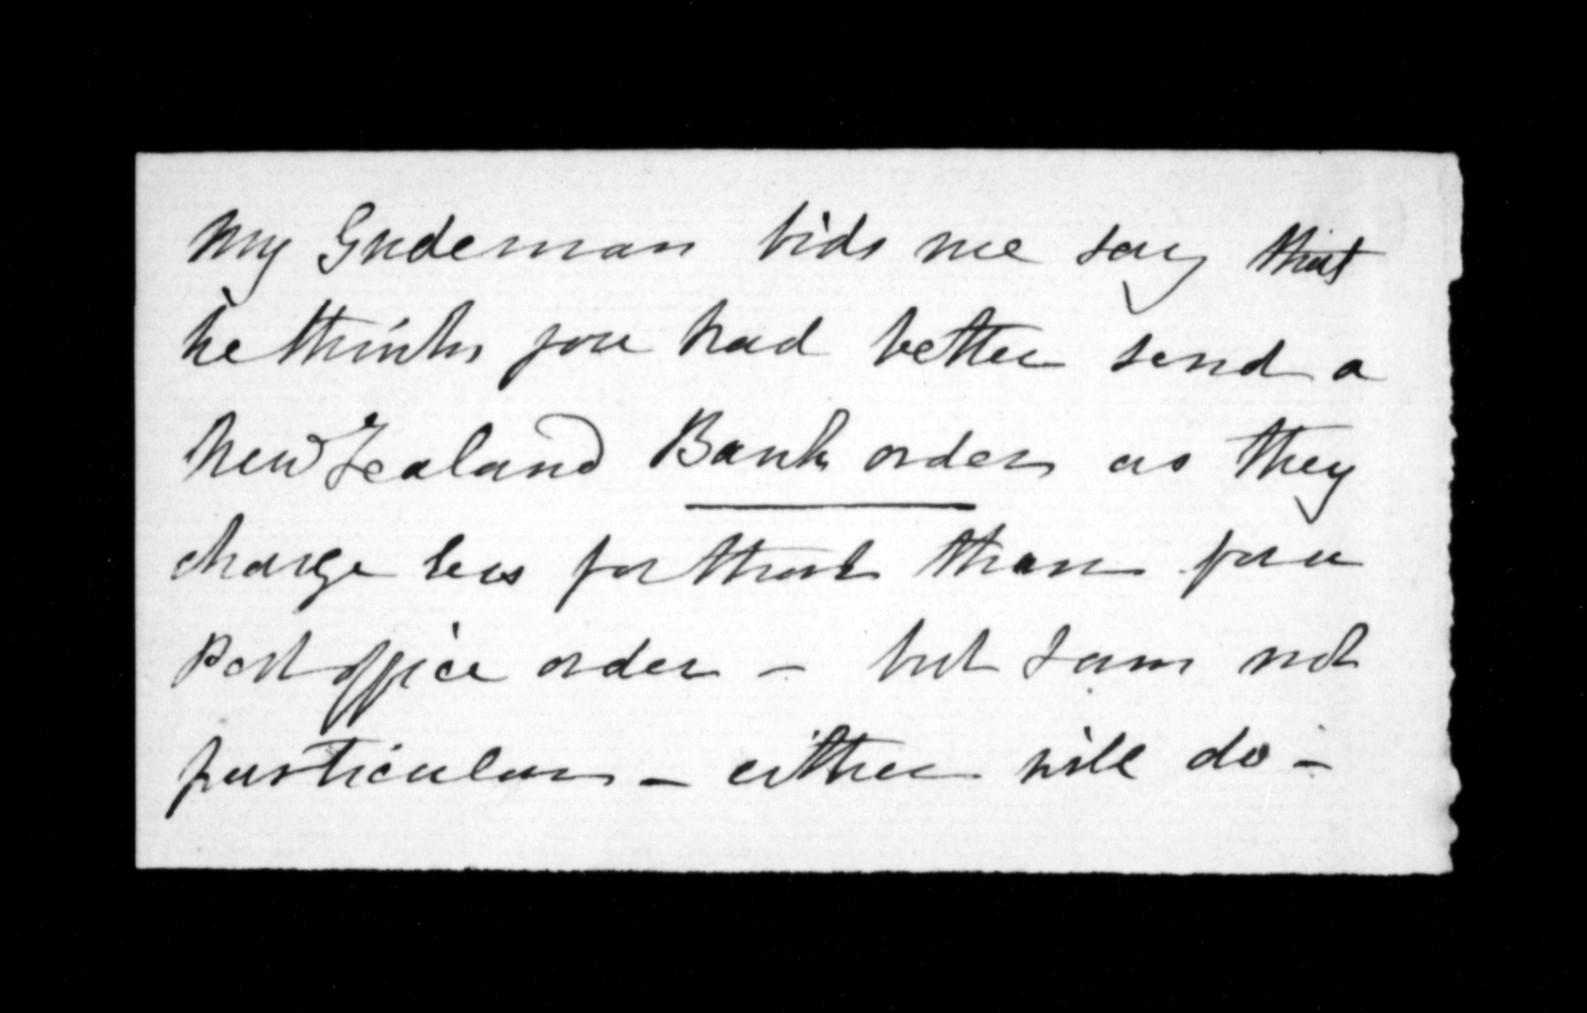 My Gudeman bids me say that
he thinks you had better send a
New Zealand Bank order as they
charge less for that than for a
Post office order - but I am not
particular - either will do -